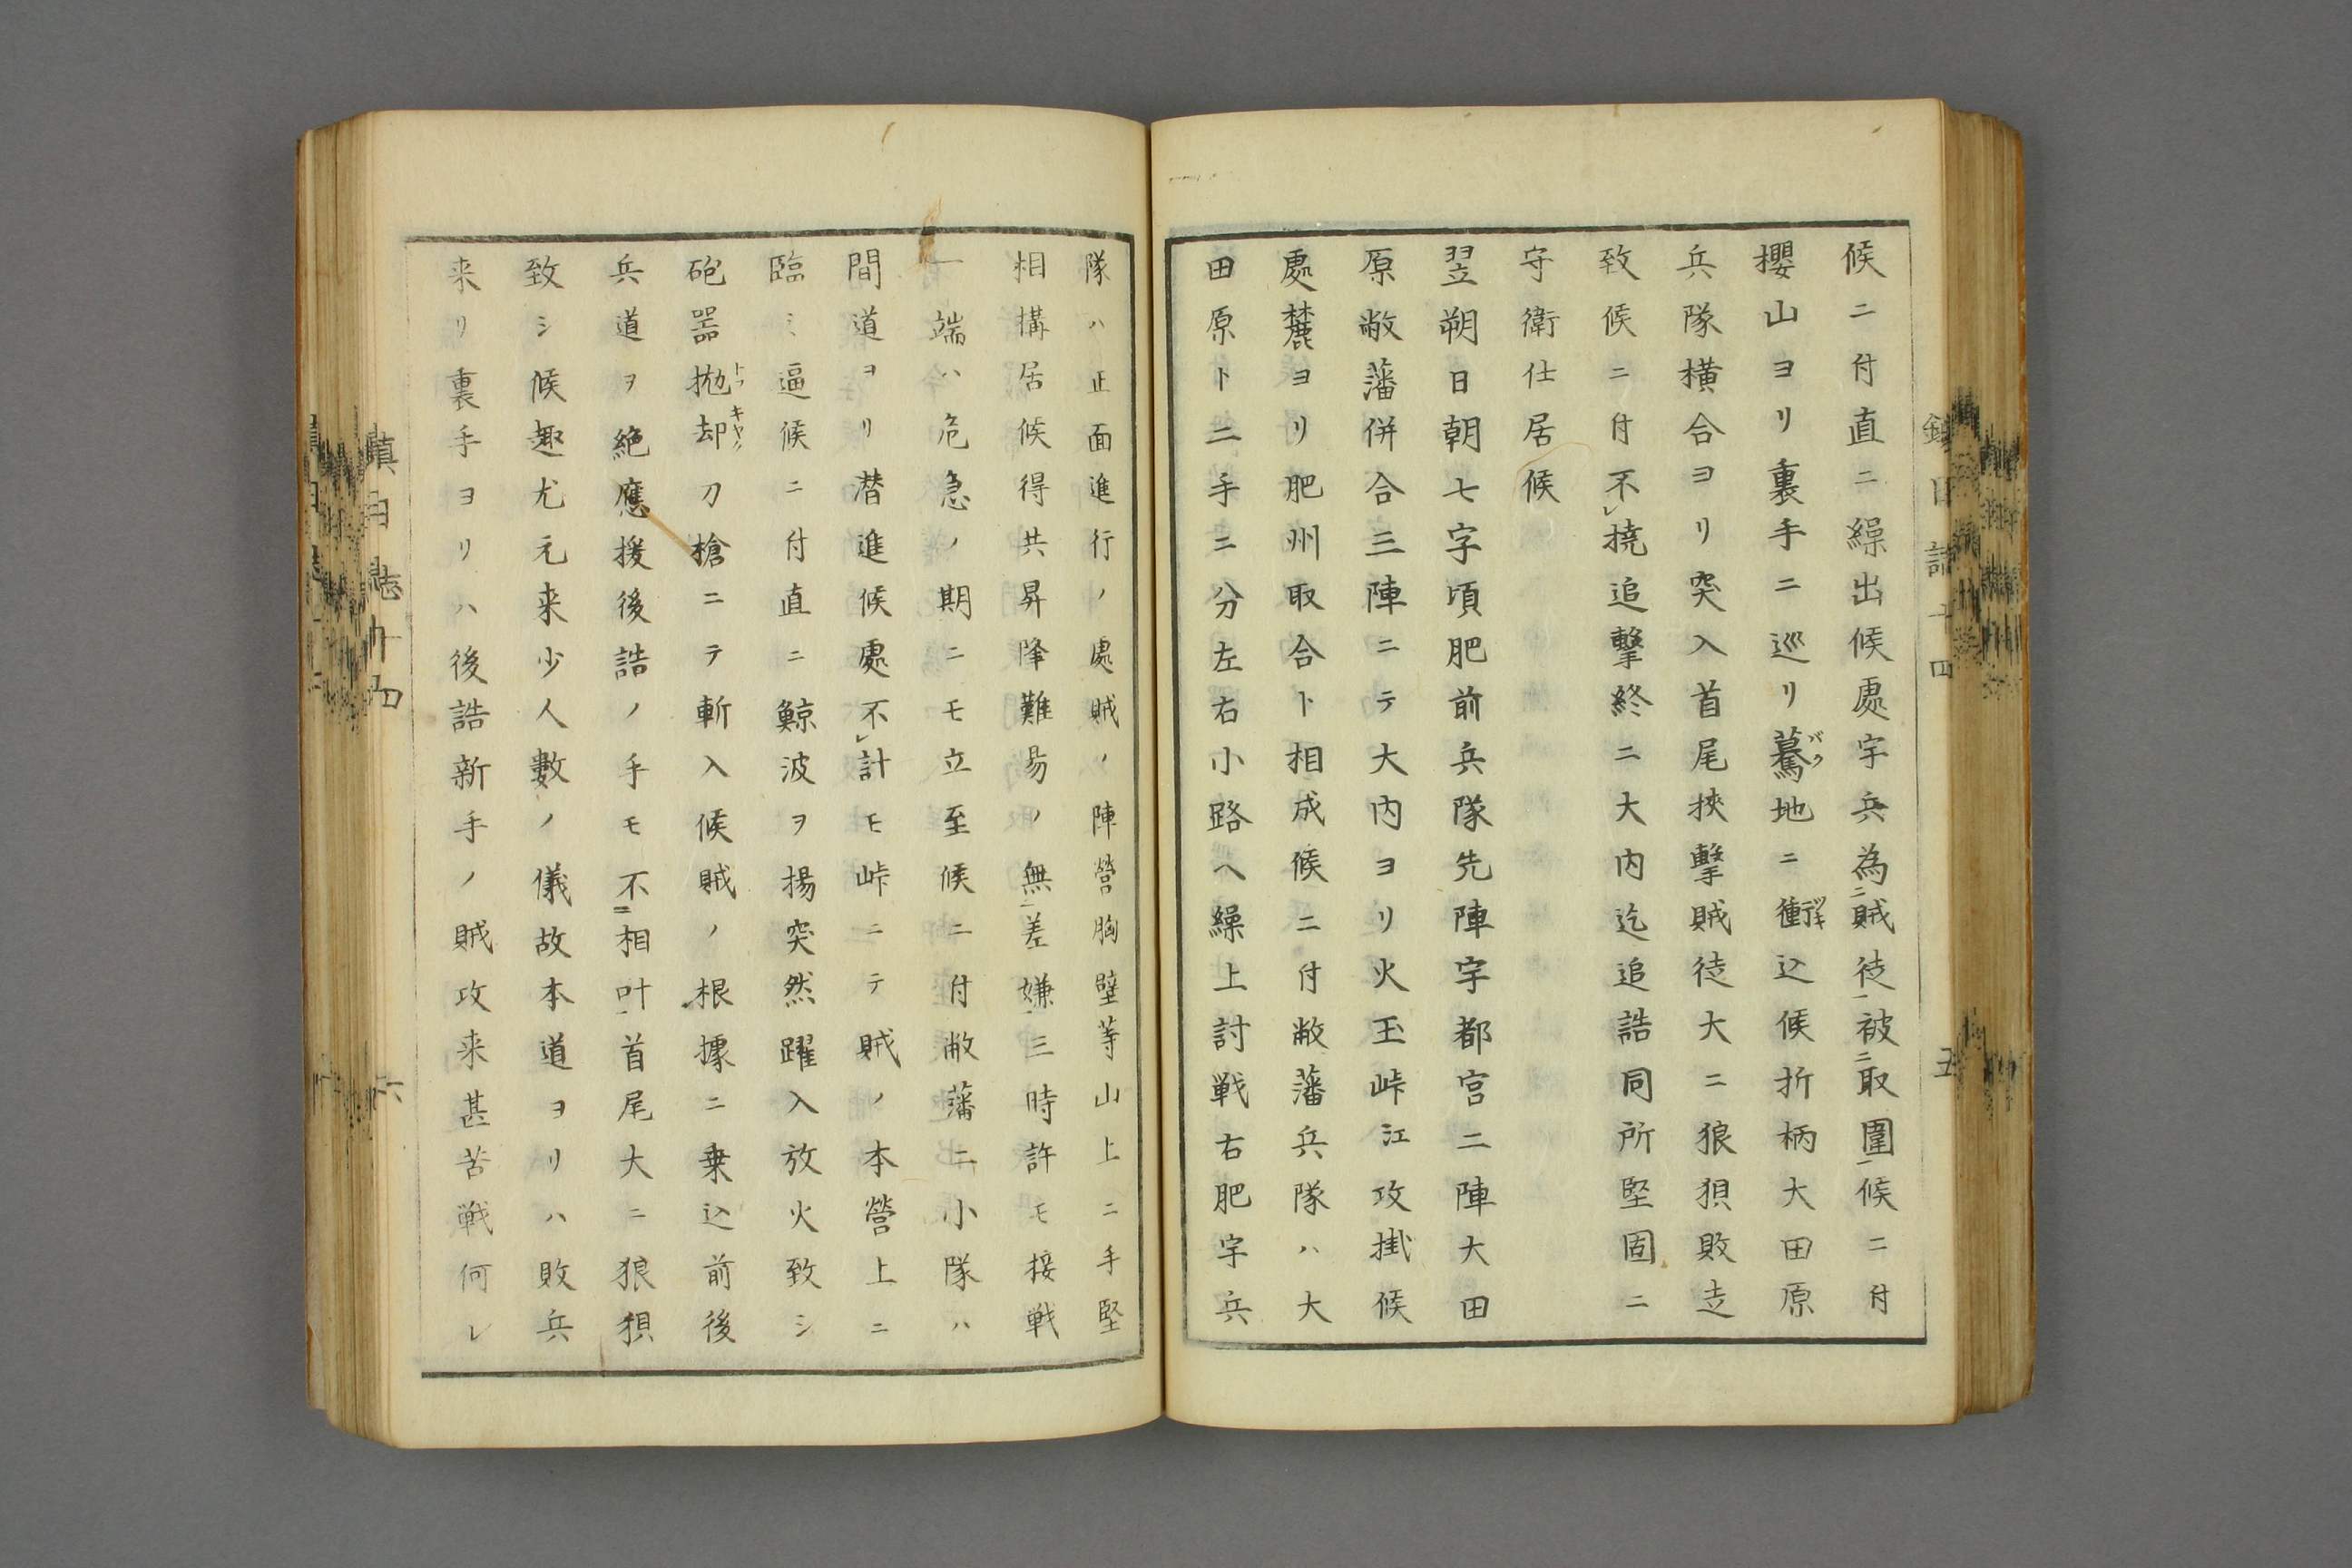 候ニ付直ニ繰出候處宇兵為ニ賊徒一被ニ取圍一候ニ付
櫻山ヨリ裏手ニ巡リ驀地ニ衝込候折柄大田原
兵隊横合ヨリ突入首尾挾擊賊徒大ニ狼狽敗走
致候ニ付不レ撓追擊終ニ大内迄追詰同所堅固ニ
守衛仕居候
翌朔日朝七字頃肥前兵隊先陣宇都宮二陣大田
原敝藩併合三陣ニテ大内ヨリ火玉峠江攻掛候
處麓ヨリ肥州取合ト相成候ニ付敝藩兵隊ハ大
田原ト二手ニ分左右小路ヘ繰上討戦右肥宇兵
隊ハ正面進行ノ處賊ノ陣營胸壁等山上ニ手堅
相構居候得共昇降難易ノ無ニ差嫌一三時許モ接戦
一端ハ危急ノ期ニモ立至候ニ付敝藩二小隊ハ
間道ヨリ潜進候處不レ計モ峠ニテ賊ノ本營上ニ
臨ミ逼候ニ付直ニ鯨波ヲ揚突然躍入放火致シ
砲器抛却刀槍ニテ斬入候賊ノ根據ニ乗込前後
兵道ヲ絶應援後詰ノ手モ不ニ相叶一首尾大ニ狼狽
致シ候趣尤元来少人數ノ儀故本道ヨリハ敗兵
来リ裏手ヨリハ後詰新手ノ賊攻来甚苦戦何レ
鎮日誌十四
六
五